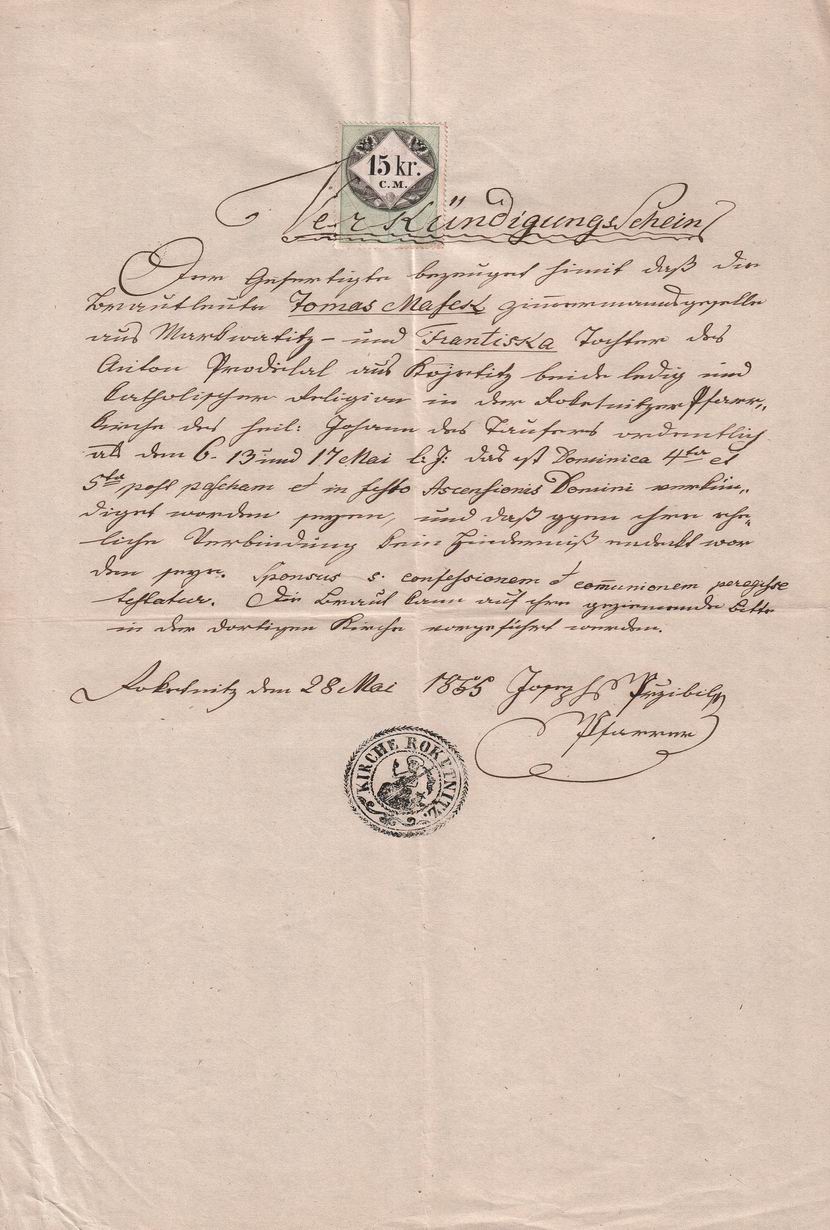 15 kr.
C.M.
Verkündigungs Schein
Der Gefertigte bezeuget himit daß die
Brautleute Tomas Mafek Zimmermannsgeselle
aus Markwatitz – und Frantiska Tochter des
Anton Prodělal aus Kojetitz beide ledig und
katholischer Religion in der Roketnitzer Pfarr„
kirche des heil: Johann des Taufers ordentlich
als den 6. 13 und 17 Mai l: J: das ist Dominica 4ta et
5ta post pascham et in festo Ascensionis Domini verkün„
diget worden seyen, und daß gegen ihre ehe„
liche Verbindung kein Hinderniß endeckt wor
den seye. Sponsus s: confessionem et com̄unionem peregisse
testatur. Die Braut kann auf ihre geziemende Bitte
in der dortigen Kirche vorgeführt werden.
Roketnitz den 28 Mai Joseph Przibil
Pfarrer
KIRCHE ROKETNITZ.